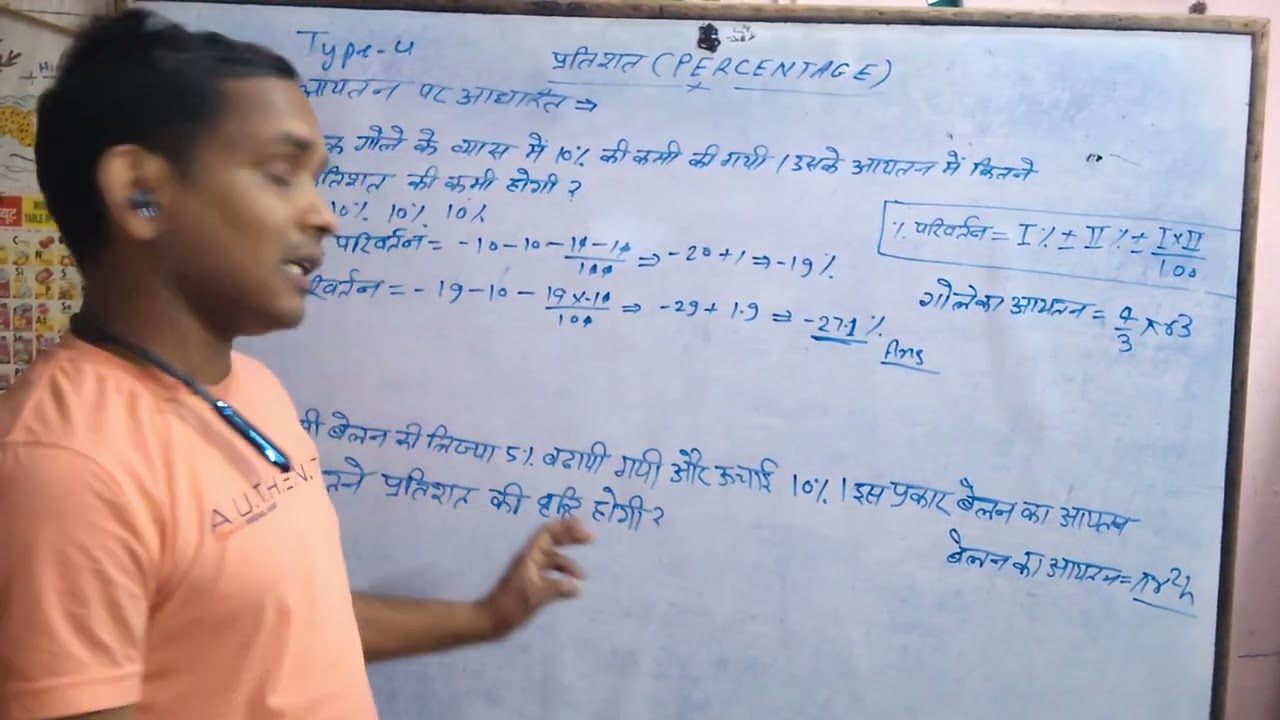 Type-4
प्रतिशत (PERCENTAGE)
आयतन पर आधारित ⇒
क गोले के व्यास में 10% की कमी की गयी । उसके आयतन में कितने
तिशत की कमी होगी ?
10% 10% 10%
परिवर्तन = -10-10-\frac{10-10}{100} ⇒ -20+1 ⇒ -19%
वर्तन = -19-10-\frac{19×-10}{100} ⇒ -29+1.9 ⇒ -27.1%
Ans
% परिवर्तन = I% ± II% ± \frac{I×II}{100}
गोले का आयतन = \frac{4}{3}πr3
बेलन की त्रिज्या 5% बढायी गयी और ऊचाई 10% । इस प्रकार बेलन का आयतन
तने प्रतिशत की वृद्दि होगी ?
बेलन का आयतन = πr²h
AUTHEN.T